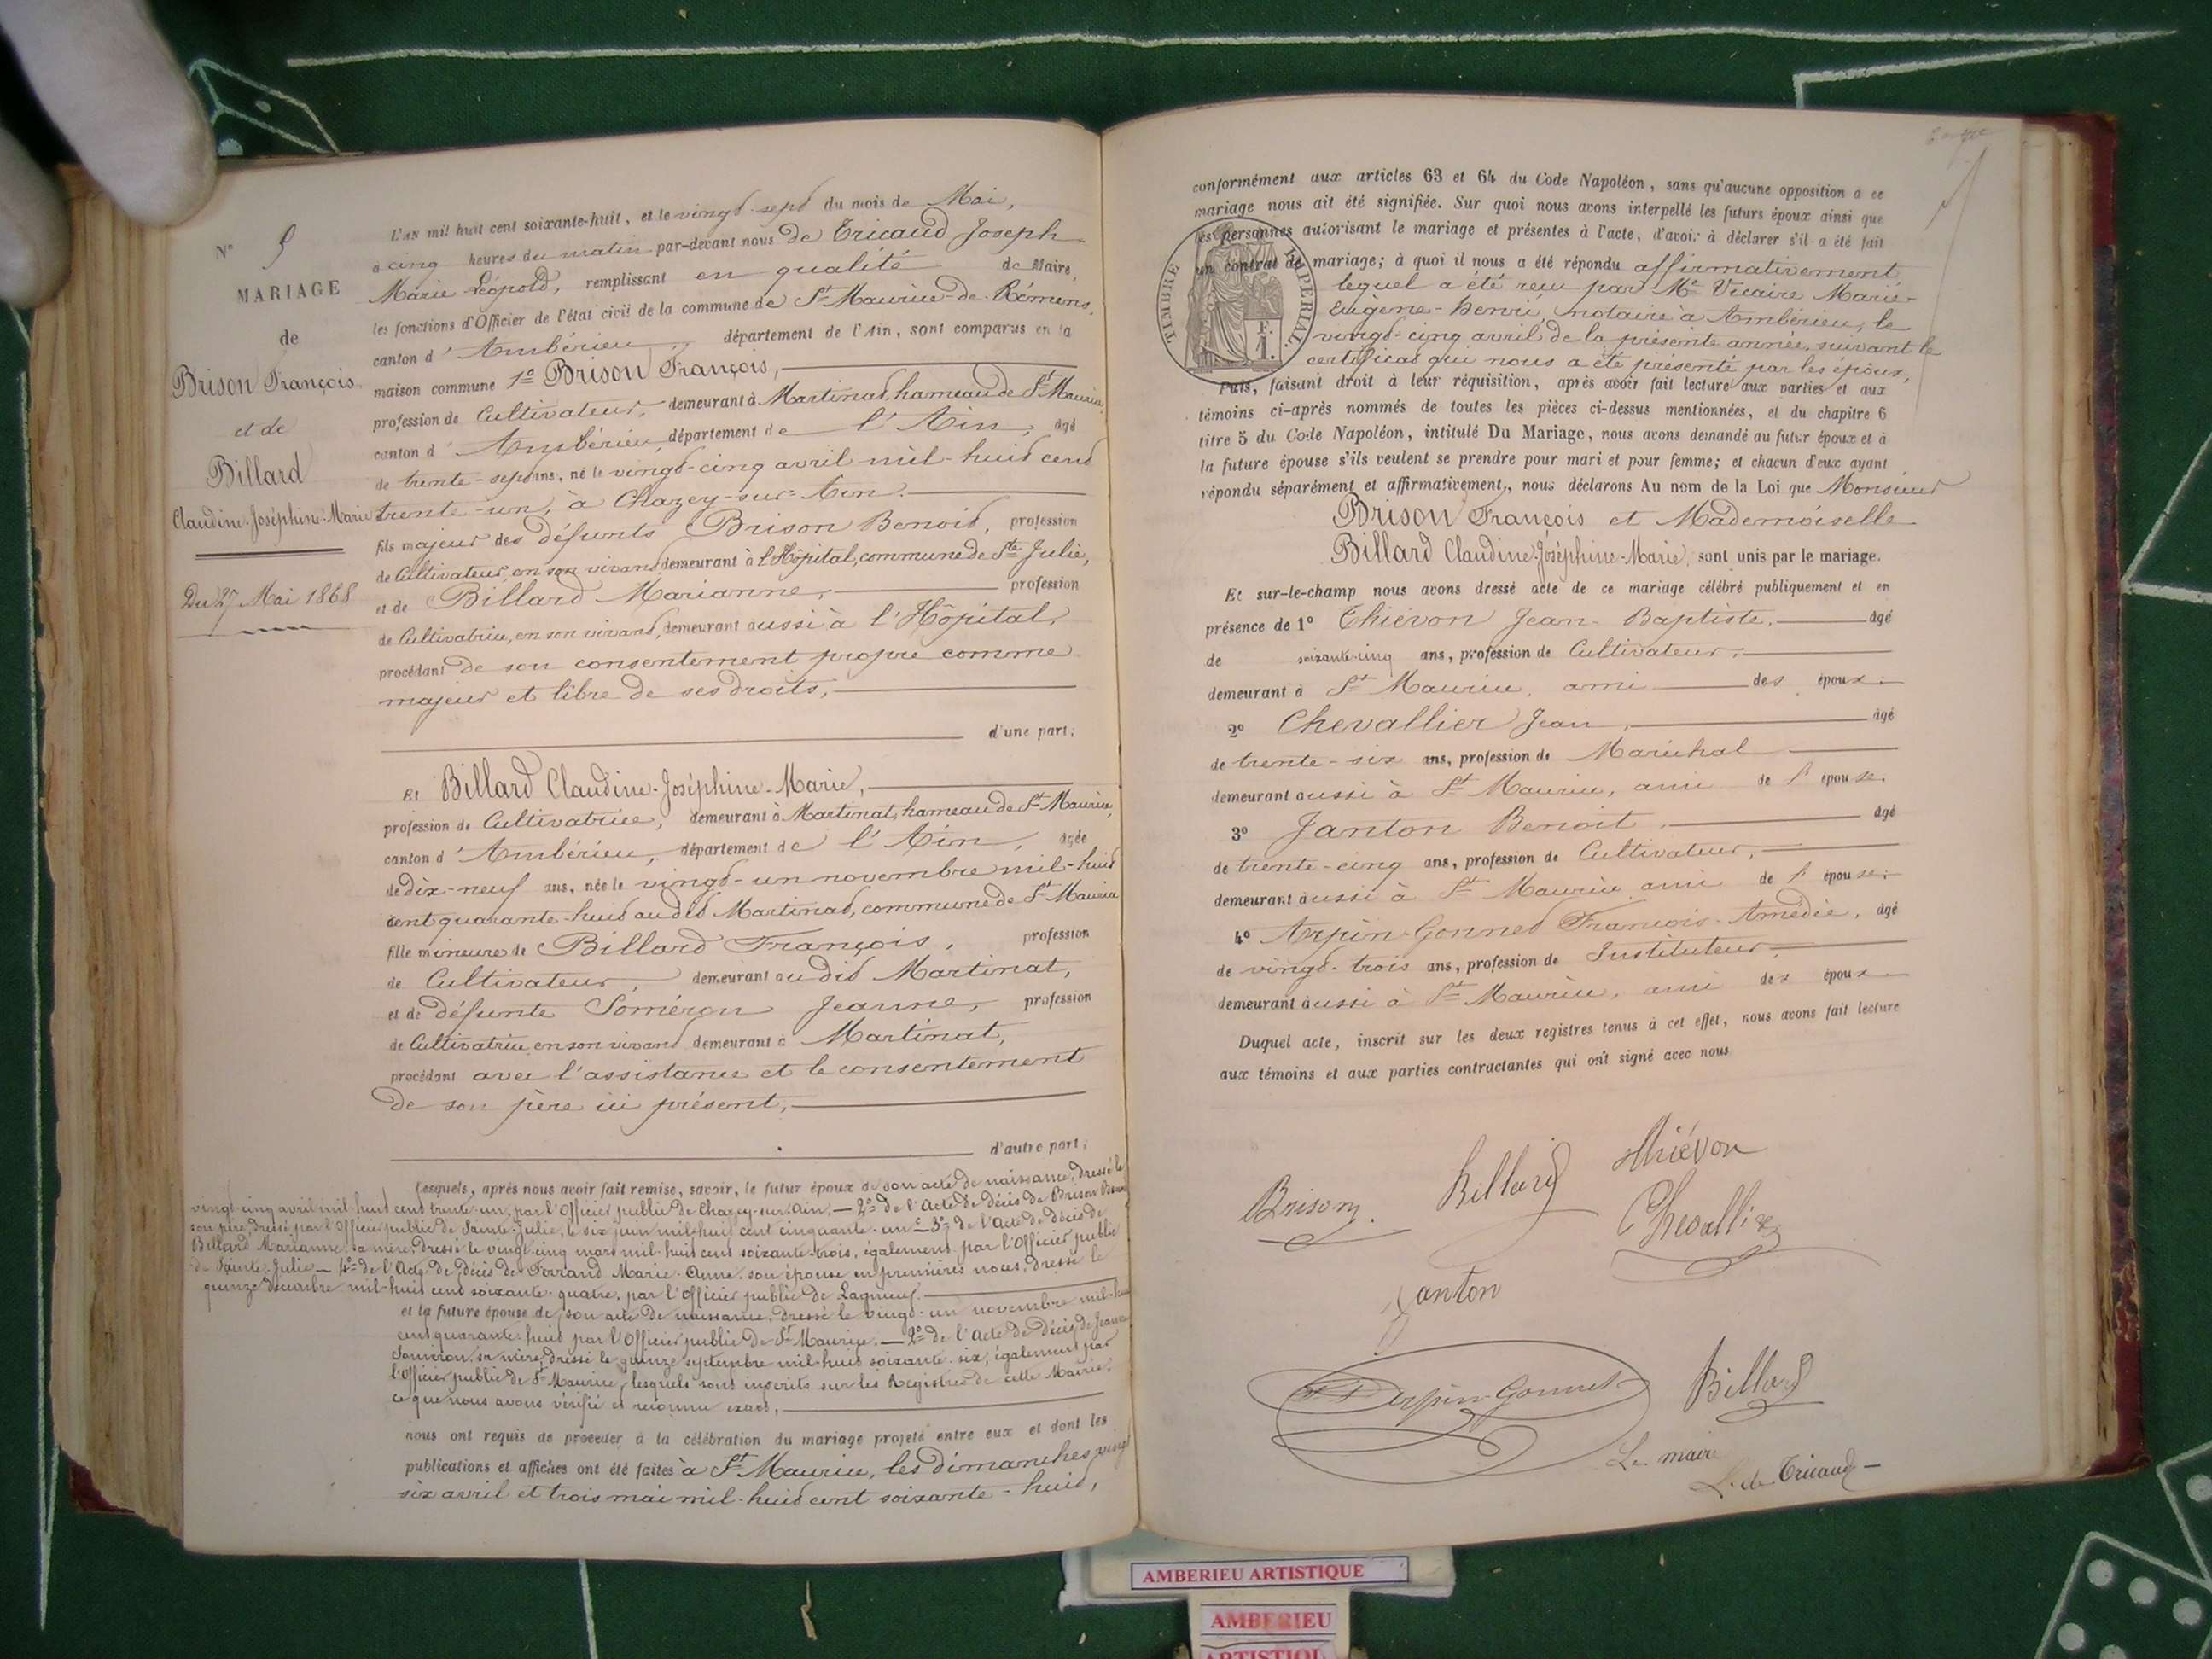 N° 5
MARIAGE
de
Brison François
et de
Billard
Claudine-Joséphine-Marie
Du 27 Mai 1868
L'an mil huit cent soixante-huit, et le vingt-sept du mois de Mai,
à cinq heures du matin par-devant nous de Tricaud Joseph
Marie Léopold, remplissant en qualité de Maire,
les fonctions d'Officier de l'état civil de la commune de St Maurice-de-Rémens,
canton d'Ambérieu, département de l'Ain, sont comparus en la
maison commune 1° Brison François,
profession de Cultivateur, demeurant à Martinat, hameau de St Maurice,
canton d'Ambérieu, département de l'Ain, âgé
de trente-sept ans, né le vingt-cinq avril mil-huit cent
trente-un, à Chazey-sur-Ain.
fils majeur des défunts Brison Benoit, profession
de Cultivateur, en son vivant demeurant à l'Hôpital, commune de Ste Julie,
et de Billard Marianne, profession
de Cultivatrice, en son vivant, demeurant aussi à l'Hôpital,
procédant de son consentement propre comme
majeur et libre de ses droits,
d'une part;
Et Billard Claudine-Joséphine-Marie,
profession de Cultivatrice, demeurant à Martinat, hameau de St Maurice,
canton d'Ambérieu, département de l'Ain, âgée
de dix-neuf ans, née le vingt-un novembre mil-huit
cent quarante-huit audit Martinat, commune de St Maurice
fille mineure de Billard François, profession
de Cultivateur, demeurant audit Martinat,
et de défunte Soméron Jeanne, profession
de Cultivatrice en son vivant demeurant à Martinat,
procédant avec l'assistance et le consentement
de son père ici présent,
d'autre part;
Lesquels, après nous avoir fait remise, savoir, le futur époux de son acte de naissance, dressé le
vingt-cinq avril mil-huit cent trente-un, par l'Officier public de Chazey-sur-Ain, — 2° de l'Acte de décès de Brison Benoit
son père, dressé par l'Officier public de Sainte-Julie, le six juin mil-huit cent cinquante-un — 3° de l'Acte de décès de
Billard Marianne sa mère, dressé le vingt-cinq mars mil-huit cent soixante-trois, également par l'Officier public
de Sainte-Julie — 4° de l'Acte de décès de Ferrand Marie-Anne, son épouse en premières noces, dressé le
quinze décembre mil-huit cent soixante-quatre, par l'Officier public de Lagnieu.
et la future épouse de son acte de naissance, dressé le vingt-un novembre mil-huit
cent quarante-huit par l'Officier public de St Maurice. — 2° de l'Acte de décès de Jeanne
Soméron, sa mère, dressé le quinze septembre mil-huit soixante-six, également par
l'Officier public de St Maurice, lesquels sont inscrits sur les Registres de cette Mairie,
ce que nous avons vérifié et reconnu exact,
nous ont requis de procéder à la célébration du mariage projeté entre eux et dont les
publications et affiches ont été faites à St Maurice, les dimanches vingt
six avril et trois mai mil-huit cent soixante-huit,
conformément aux articles 63 et 64 du Code Napoléon, sans qu'aucune opposition à ce
mariage nous ait été signifiée. Sur quoi nous avons interpellé les futurs époux ainsi que
les personnes autorisant le mariage et présentes à l'acte, d'avoir à déclarer s'il a été fait
un contrat de mariage; à quoi il nous a été répondu affirmativement
lequel a été reçu par Me Vicaire Marie-
Eugène-Henri, notaire à Ambérieu, le
vingt-cinq avril de la présente année, suivant le
certificat qui nous a été présenté par les époux,
TIMBRE IMPERIAL
F. 1.
Puis, faisant droit à leur réquisition, après avoir fait lecture aux parties et aux
témoins ci-après nommés de toutes les pièces ci-dessus mentionnées, et du chapitre 6
titre 5 du Code Napoléon, intitulé Du Mariage, nous avons demandé au futur époux et à
la future épouse s'ils veulent se prendre pour mari et pour femme; et chacun d'eux ayant
répondu séparément et affirmativement, nous déclarons Au nom de la Loi que Monsieur
Brison François et Mademoiselle
Billard Claudine-Joséphine-Marie, sont unis par le mariage.
Et sur-le-champ nous avons dressé acte de ce mariage célébré publiquement et en
présence de 1° Thiévon Jean-Baptiste, âgé
de soixante-cinq ans, profession de Cultivateur,
demeurant à St Maurice, ami des époux.
2° Chevallier Jean, âgé
de trente-six ans, profession de Maréchal
demeurant aussi à St Maurice, ami de l'épouse.
3° Janton Benoit, âgé
de trente-cinq ans, profession de Cultivateur,
demeurant aussi à St Maurice ami de l'épouse.
4° Arpin-Gonnet François-Amédée, âgé
de vingt-trois ans, profession de Instituteur,
demeurant aussi à St Maurice, ami des époux
Duquel acte, inscrit sur les deux registres tenus à cet effet, nous avons fait lecture
aux témoins et aux parties contractantes qui ont signé avec nous
Brison
Billard
Thiévon
Chevallier
Janton
Arpin-Gonnet
Billard
Le maire
L. de Tricaud
AMBERIEU ARTISTIQUE
AMBERIEU
ARTISTIQU